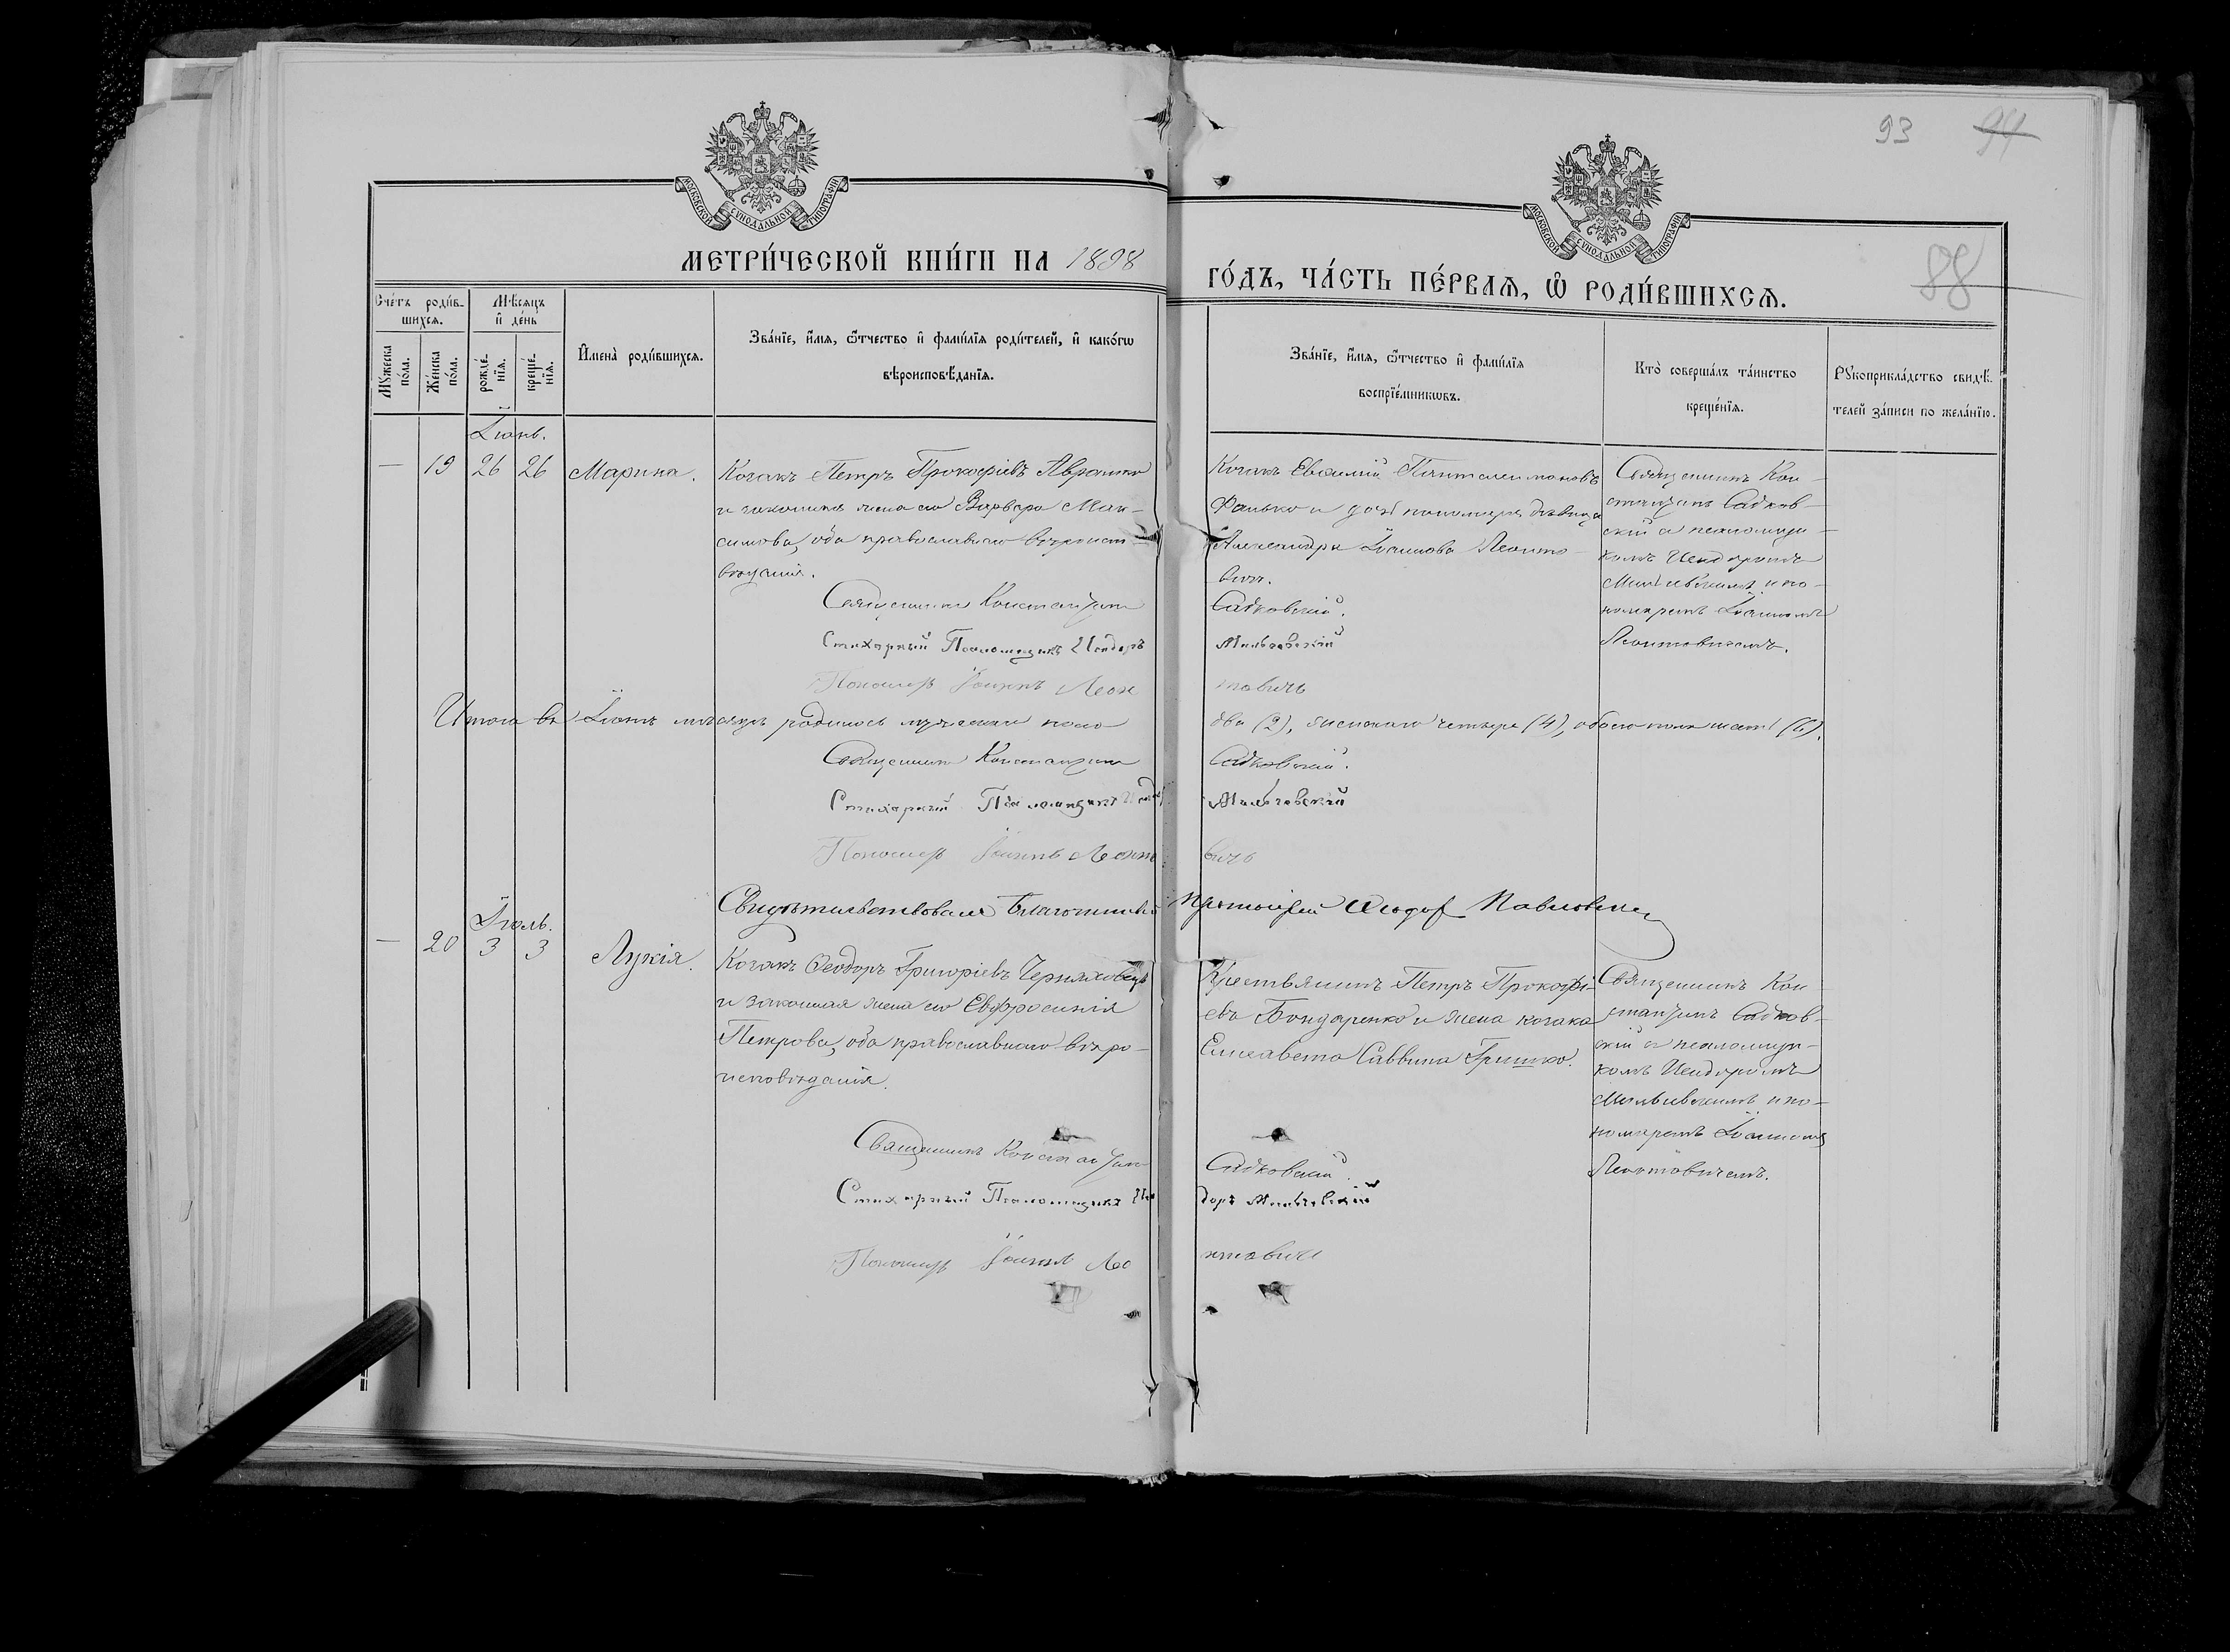 93 94
МОСКОВСКОЙ СѴНОДАЛЬНОЙ ТИПОГРАФІИ
МОСКОВСКОЙ СѴНОДАЛЬНОЙ ТИПОГРАФІИ
МЕТРИ́ЧЕСКОЙ КНИ́ГИ НА 1898
ГО́ДЪ, ЧА́СТЬ ПЕ́РВАѦ, Ѡ РОДИ́ВШИХСѦ.
88
Сче́тъ роди́в-
шихсѧ.
Мѣсѧцъ
и де́нь
Мꙋжеска
по́ла.
Же́нска
по́ла.
рожде́-
нїѧ.
креще́-
нїѧ.
Имена̀ роди́вшихсѧ.
Зва́нїе, и́мѧ, ѻ́тчество и фами́лїѧ роди́телей, и како́гѡ
вѣроисповѣ́данїѧ.
Зва́нїе, и́мѧ, ѻ́тчество и фами́лїѧ
воспрїе́мникѡвъ.
Кто̀ соверша́лъ та́инство
креще́нїѧ.
Рꙋкоприкла́дство свидѣ́-
телей за́писи по жела́нїю.
Іюнь.
— 19 26 26 Марина.
Козакъ Петръ Прокофіевъ Авраменко
и законная жена его Варвара Мак-
симова, оба православнаго вѣроиспо-
вѣданія.
Козакъ Евѳимій Пантелеимоновъ
Фанько и дочь пономаря дѣвица
Александра Іоаннова Леонто-
вичъ.
Священникъ Кон-
стантинъ Садков-
скій съ псаломщи-
комъ Исидоромъ
Мильчевскимъ и по-
номаремъ Іоанномъ
Леонтовичемъ.
Священникъ Константинъ Садковскій.
Стихарный Псаломщикъ Исидоръ Мильчевскій
Пономарь Іоаннъ Леонтовичъ
Итого въ Іюнѣ мѣсяцѣ родилось мужескаго пола два (2), женскаго четыре (4), обоего пола шесть (6).
Священникъ Константинъ Садковскій.
Стихарный Псаломщикъ Исидоръ Мильчевскій
Пономарь Іоаннъ Леонтовичъ
Свидѣтельствовалъ Благочинный Протоіерей Ѳеодоръ
Іюль.
— 20 3 3 Лукія.
Козакъ Ѳеодоръ Григоріевъ Черняховецъ
и законная жена его Евфросинія
Петрова, оба православнаго вѣро-
исповѣданія.
Крестьянинъ Петръ Прокофі-
евъ Бондаренко и жена козака
Елисавета Саввина Гришко.
Священникъ Кон-
стантинъ Садков-
скій съ псаломщи-
комъ Исидоромъ
Мильчевскимъ и по-
номаремъ Іоанномъ
Леонтовичемъ.
Священникъ Константинъ Садковскій.
Стихарный Псаломщикъ Исидоръ Мильчевскій
Пономарь Іоаннъ Леонтовичъ